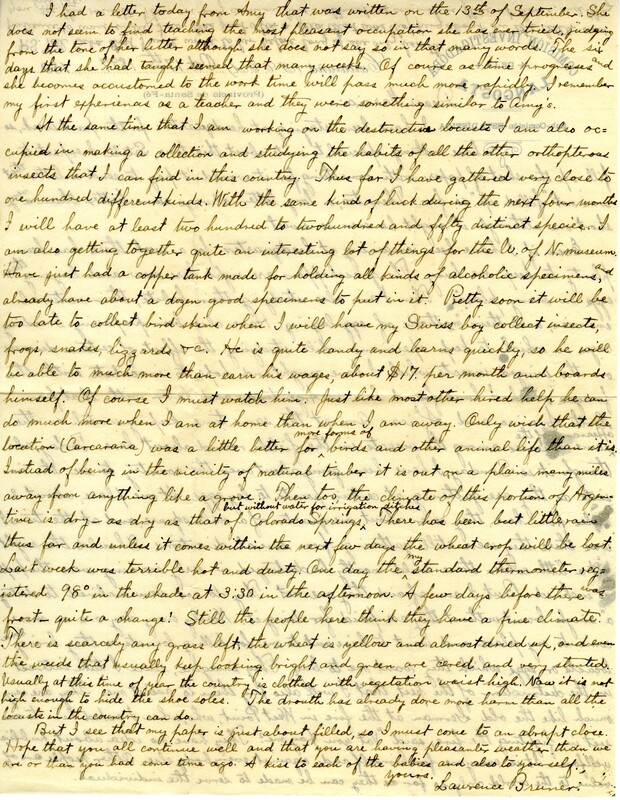 I had a letter today from Amy that was written on the 13th of September. She
does not seem to find teaching the most pleasant occupation she has ever tried, judging
from the tone of her letter although she does not say so in that many words. The six
days that she had taught seemed that many weeks. Of course as time progresses and
she becomes accustomed to the work time will pass much more rapidly. I remember
my first experiences as a teacher and they were something similar to Amy's.
At the same time that I am working on the destructive locusts I am also oc=
cupied in making a collection and studying the habits of all the other orthopterous
insects that I can find in this country. Thus far I have gathered very close to
one hundred different kinds. With the same kind of luck during the next four months
I will have at least two hundred to two hundred and fifty distinct species. I
am also getting together quite an interesting lot of things for the U. of N. museum.
Have just had a copper tank made for holding all kinds of alcoholic specimens, and
already have about a dozen good specimens to put in it. Pretty soon it will be
too late to collect bird skins when I will have my Swiss boy collect insects,
frogs, snakes, lizzards &c. He is quite handy and learns quickly, so he will
be able to much more than earn his wages, about $17. per month and boards
himself. Of course I must watch him. Just like most other hired help he can
do much more when I am at home than when I am away. Only wish that the
location (Carcaraña) was a little better for more forms of birds and other animal life than it is.
Instead of being in the vicinity of natural timber it is out on a plain many miles
away from anything like a grove. Then too, the climate of this portion of Argen-
tine is dry – as dry as that of Colorado Springs, but without water for irrigation ditches There has been but little rain
thus far and unless it comes within the next few days the wheat crop will be lost.
Last week was terrible hot and dusty. One day the my standard thermometer reg-
istered 98° in the shade at 3:30 in the afternoon. A few days before there was
frost – quite a change! Still the people here think they have a fine climate.
There is scarcely any grass left, the wheat is yellow and almost dried up, and even
the weeds that usually keep looking bright and green are cered and very stunted.
Usually at this time of year the country is clothed with vegetation waist high. Now it is not
high enough to hide the shoe soles. The drouth has already done more harm than all the
locusts in the country can do.
But I see that my paper is just about filled, so I must come to an abrupt close.
Hope that you all continue well and that you are having pleasanter weather than we
are or than you had some time ago. A kiss to each of the babies and also to yourself,
yours,
Lawrence Bruner.